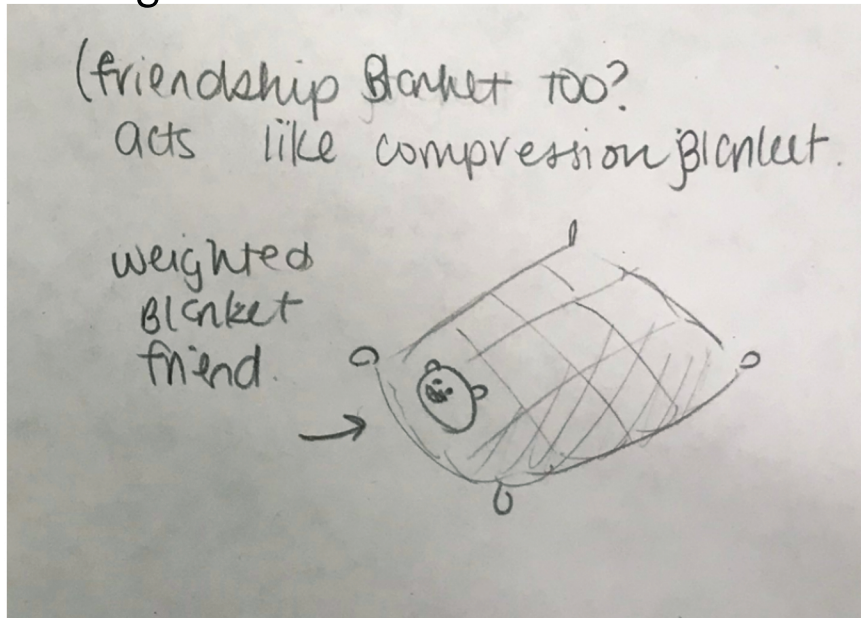 (friendship Blanket too?
acts like compression Blanket.
weighted
Blanket
friend.